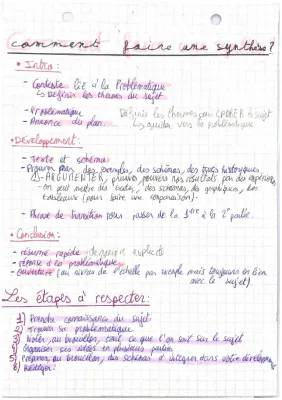 Comment faire une synthèse?
• Intro:
- Contexte lié à la Problématique
↳ Définir les thèmes du sujet
- Problématique
- Annonce du plan
Définir les thèmes pour CADRER le sujet
↳ guider vers la problématique
• Développement:
- Texte et schémas
- des exemples, des schémas, des historiques
ARGUMENTER, prouver nos résultats par des expériences
- on peut mettre des textes, des schémas, des graphiques, des
tableaux (pour faire une comparaison).
- Phrase de transition pour passer de la 1ère à la 2e partie.
• Conclusion:
- résumé rapide de manière explicite
- réponse à la problématique
- ouverture (au niveau de l'échelle par exemple mais toujours en lien
avec le sujet)
Les étapes à respecter:
1) Prendre connaissance du sujet
2) Trouver sa problématique
3) Noter au brouillon, tout ce que l'on sait sur le sujet
4) Organiser ses idées en plusieurs parties
5) Préparer au brouillon, des schémas à intégrer dans votre développement
6) Rédiger!